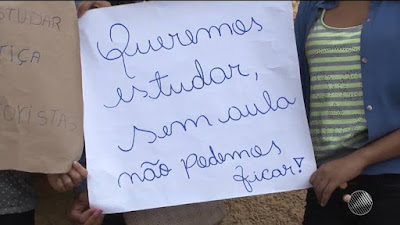 ESTUDAR
TIÇA
ORISTAS
Queremos
estudar,
sem aula
não podemos
ficar!